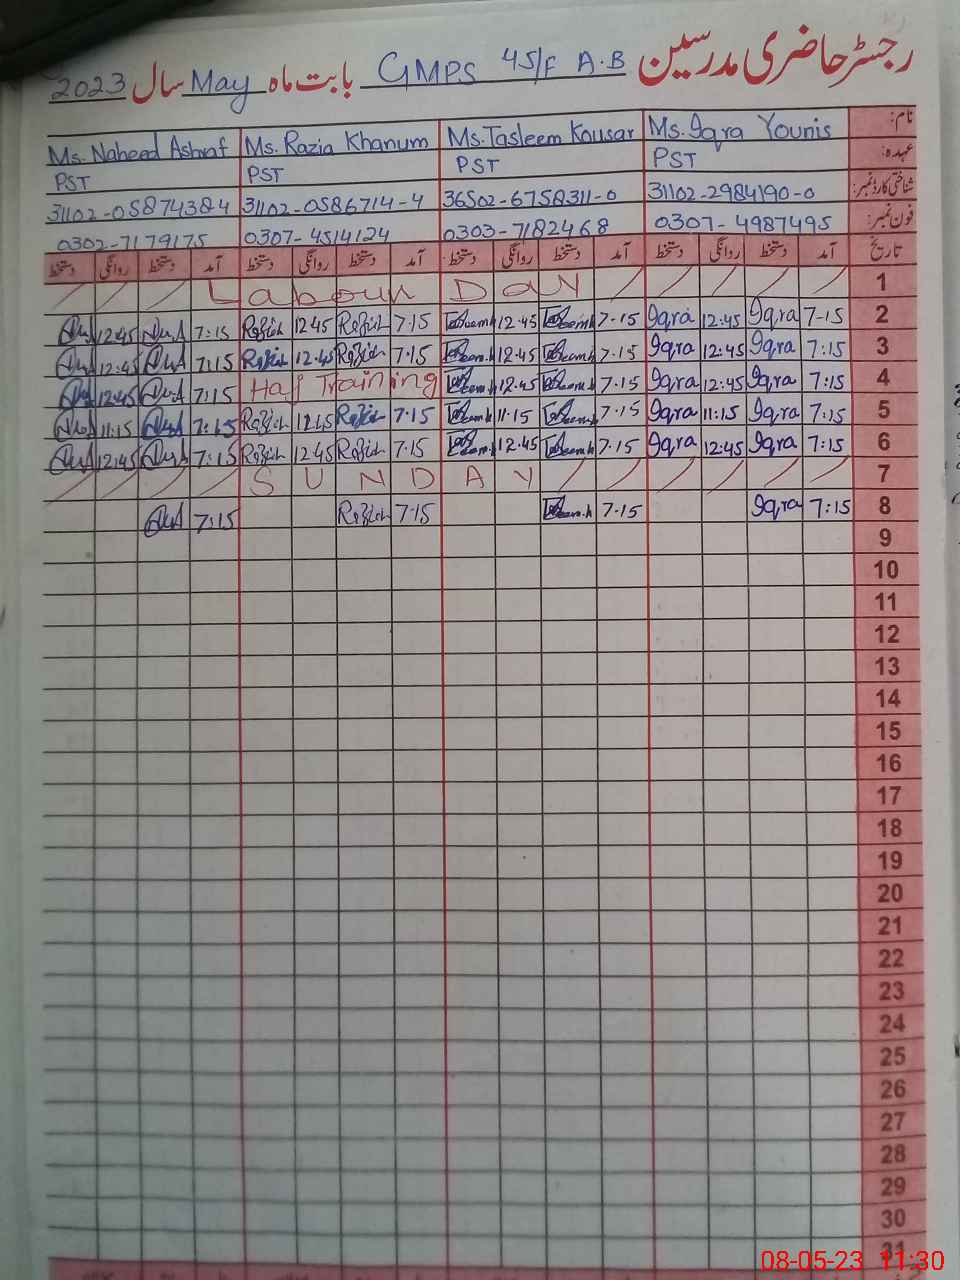 رجسٹر حاضری مدرسین GMPS 45/F A.B بابت ماہ May سال 2023
نام: Ms. Iqra Younis Ms. Tasleem Kousar Ms. Razia Khanum Ms. Naheed Ashraf
عہدہ: PST PST PST PST
شناختی کارڈ نمبر: 31102-2984190-0 36502-6758311-0 31102-0586714-4 31102-05874384
فون نمبر: 0307-4987495 0303-7182468 0307-4514124 0302-7179175
تاریخ آمد دستخط روانگی دستخط آمد دستخط روانگی دستخط آمد دستخط روانگی دستخط آمد دستخط روانگی دستخط
1 Labour Day
2 7-15 Iqra 12:45 Iqra 7-15 12-45 7-15 Razia 12 45 Razia 7:15 12:45
3 7:15 Iqra 12:45 Iqra 7-15 12-45 7-15 Razia 12-45 Razia 7:15 12:45
4 7:15 Iqra 12:45 Iqra 7-15 12-45 Haf Training 7:15 12:45
5 7:15 Iqra 11:15 Iqra 7-15 11-15 7-15 Razia Razia 7:15 11:15
6 7:15 Iqra 12:45 Iqra 7-15 12-45 7-15 Razia 12 45 Razia 7:15 12:45
7 SUNDAY
8 7:15 Iqra 7-15 7-15 Razia 7:15
9
10
11
12
13
14
15
16
17
18
19
20
21
22
23
24
25
26
27
28
29
30
31
08-05-23 11:30